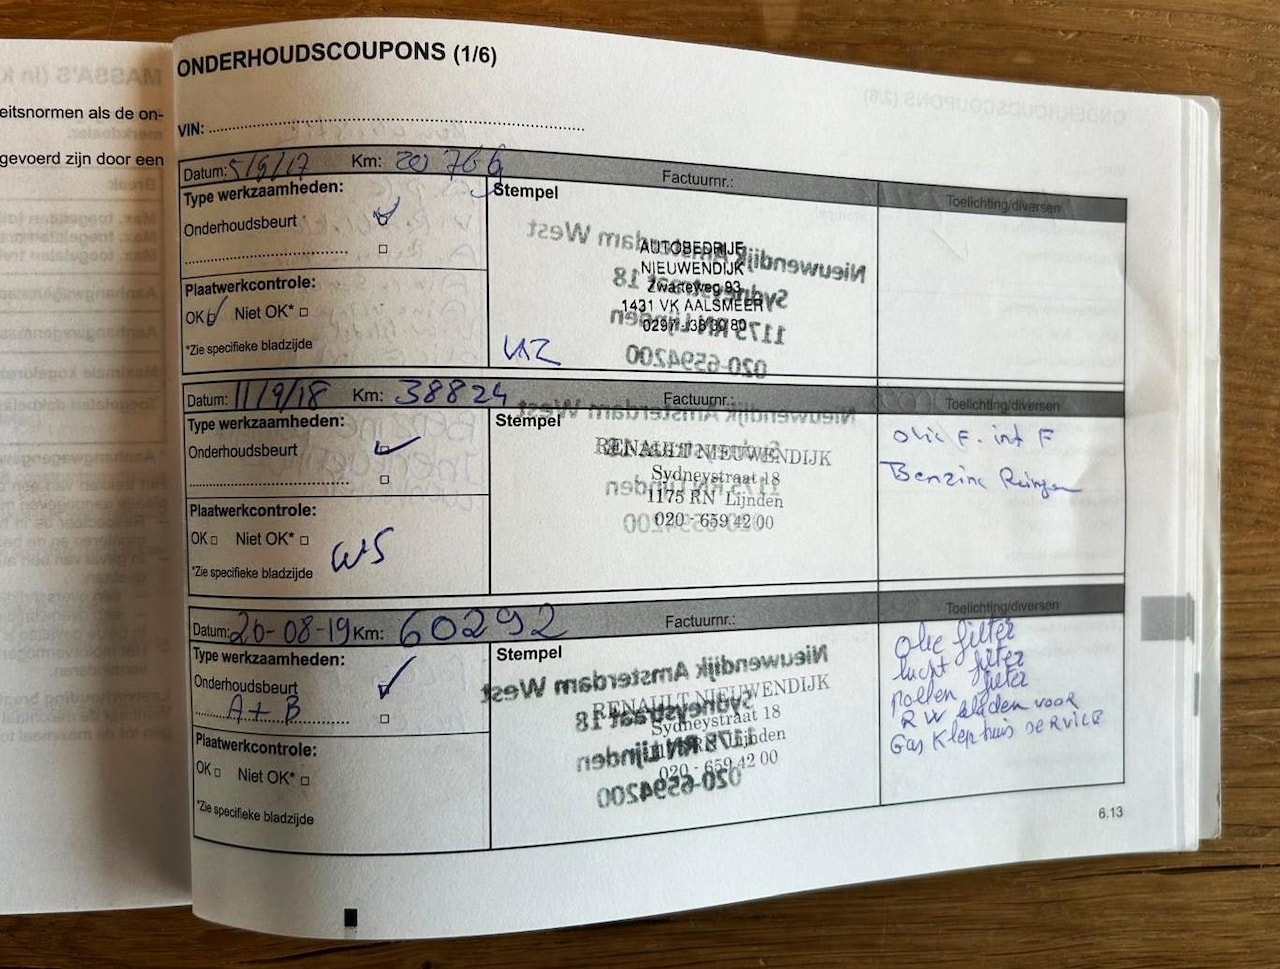 ONDERHOUDSCOUPONS (1/6)
eitsnormen als de on-
gevoerd zijn door een
VIN:
Datum: 5/9/17 Km: 20 766 Factuurnr.:
Type werkzaamheden:
Stempel
Toelichting/diversen
Onderhoudsbeurt
AUTOBEDRIJF
NIEUWENDIJK
Zwarteweg 93
1431 VK AALSMEER
Plaatwerkcontrole:
OK Niet OK*
*Zie specifieke bladzijde
Datum: 11/9/18 Km: 38824 Factuurnr.:
Type werkzaamheden:
Stempel
Toelichting/diversen
Onderhoudsbeurt
RENAULT NIEUWENDIJK
Sydneystraat 18
1175 RN Lijnden
020 - 659 42 00
Olie F. int F
Benzine
Plaatwerkcontrole:
OK Niet OK*
WS
*Zie specifieke bladzijde
Datum: 26-08-19 Km: 60292 Factuurnr.:
Type werkzaamheden:
Stempel
Toelichting/diversen
Onderhoudsbeurt
A+B
RENAULT NIEUWENDIJK
Sydneystraat 18
1175 RN Lijnden
020 - 659 42 00
Olie filter
lucht filter
Pollen filter
RW bladen voor
Gas Klephuis SERVICE
Plaatwerkcontrole:
OK Niet OK*
*Zie specifieke bladzijde
6.13